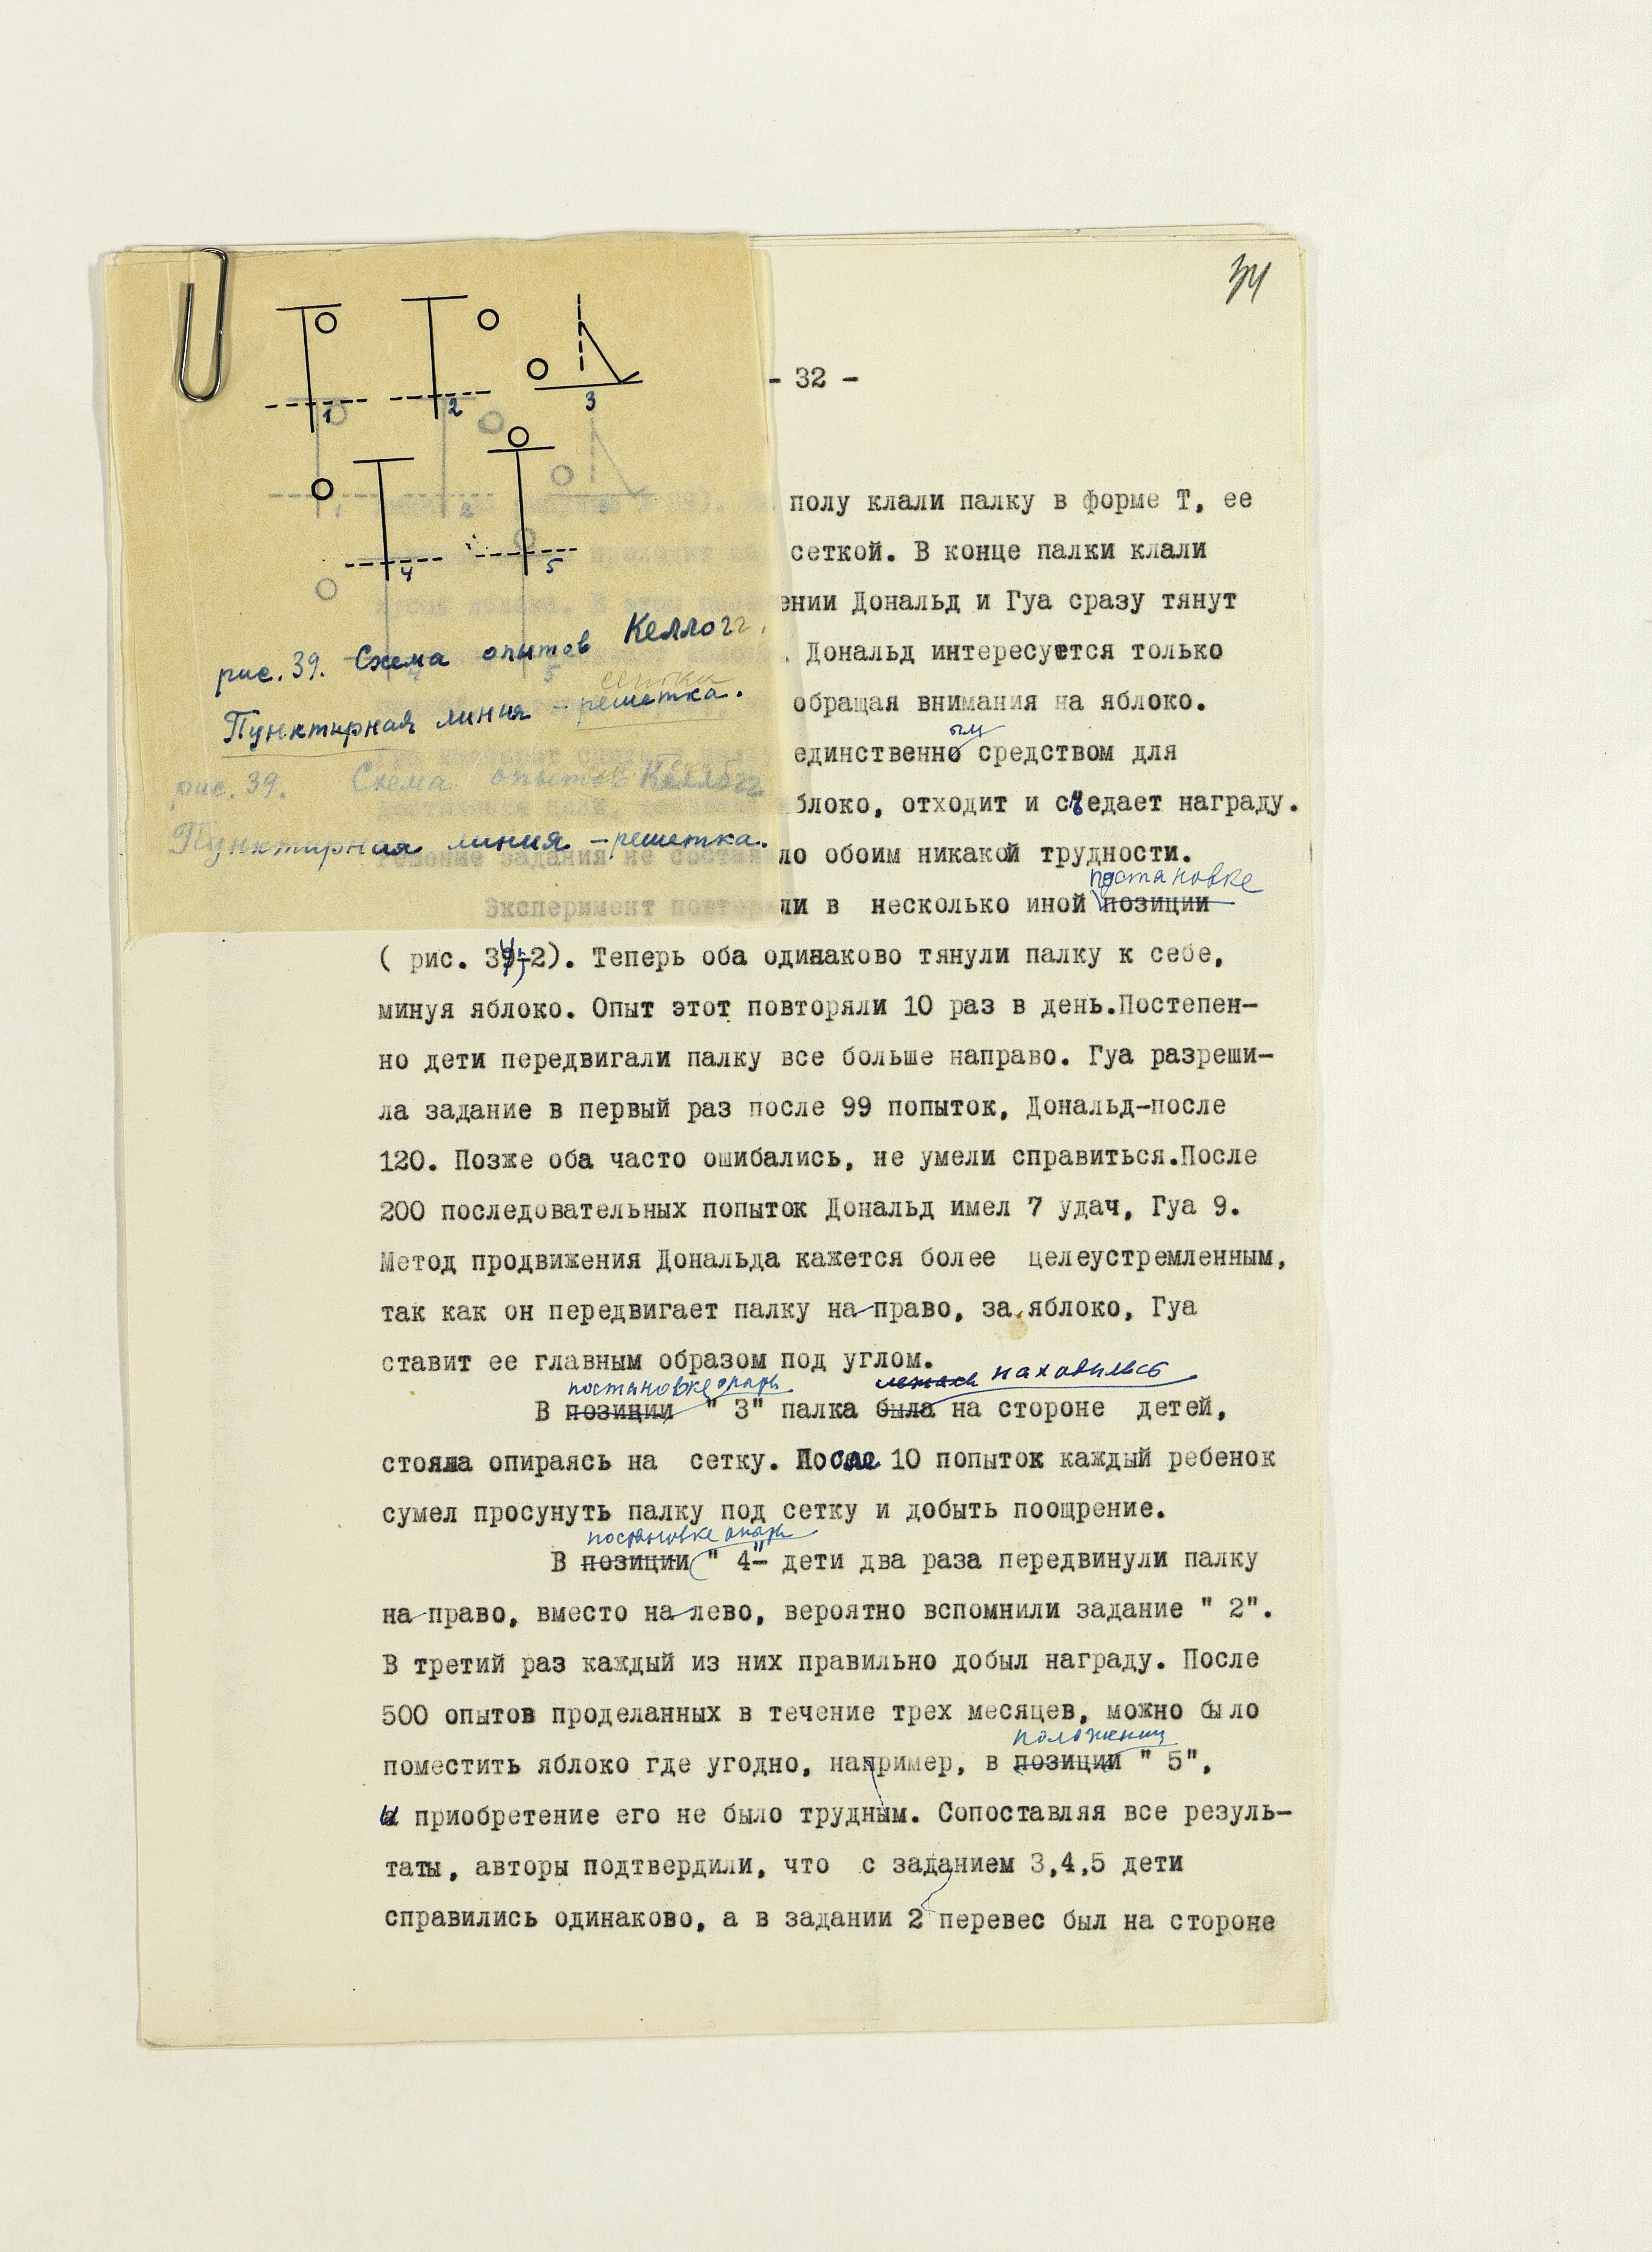 34
- 32 -
1
2
3
4
5
рис. 39. Схема опытов Келлогг.
сетка
Пунктирная линия - решетка.
рис. 39. Схема опытов Келлогг
Пунктирная линия - решетка.
полу клали палку в форме Т, ее
проходит за сеткой. В конце палки клали
кусок яблока. В этом положении Дональд и Гуа сразу тянут
. Дональд интересуется только
обращая внимания на яблоко.
ым
единственно средством для
яблоко, отходит и съедает награду.
решение задания не составляло обоим никакой трудности.
постановке
Эксперимент повторяли в несколько иной позиции
( рис. 39-2). Теперь оба одинаково тянули палку к себе,
минуя яблоко. Опыт этот повторяли 10 раз в день.Постепен-
но дети передвигали палку все больше направо. Гуа разреши-
ла задание в первый раз после 99 попыток, Дональд-после
120. Позже оба часто ошибались, не умели справиться.После
200 последовательных попыток Дональд имел 7 удач, Гуа 9.
Метод продвижения Дональда кажется более целеустремленным,
так как он передвигает палку на право, за яблоко, Гуа
ставит ее главным образом под углом.
постановке опыта лежала находилась
В позиции " 3" палка была на стороне детей,
стояла опираясь на сетку. После 10 попыток каждый ребенок
сумел просунуть палку под сетку и добыть поощрение.
постановке опыта
В позиции " 4" дети два раза передвинули палку
на право, вместо на лево, вероятно вспомнили задание " 2".
В третий раз каждый из них правильно добыл награду. После
500 опытов проделанных в течение трех месяцев, можно было
положении
поместить яблоко где угодно, например, в позиции " 5",
и приобретение его не было трудным. Сопоставляя все резуль-
таты, авторы подтвердили, что с заданием 3,4,5 дети
справились одинаково, а в задании 2 перевес был на стороне